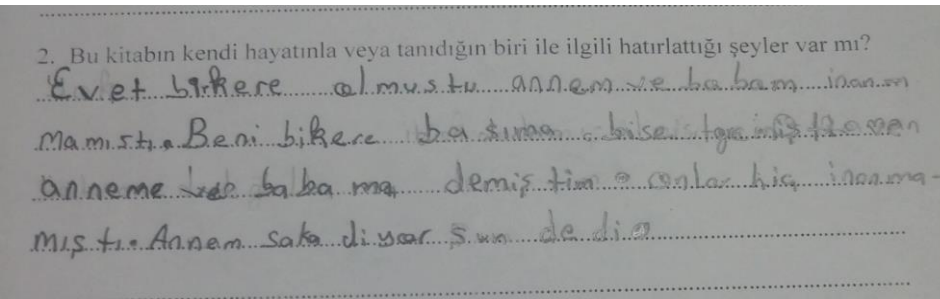 2. Bu kitabın kendi hayatınla veya tanıdığın biri ile ilgili hatırlattığı şeyler var mı?
Evet birkere olmustu annem ve babam inanm
mamıstı. Beni bikere başıma bise
anneme babama demiştim onlar hiç inanma-
mıştı. Annem saka diyorsun dedi.